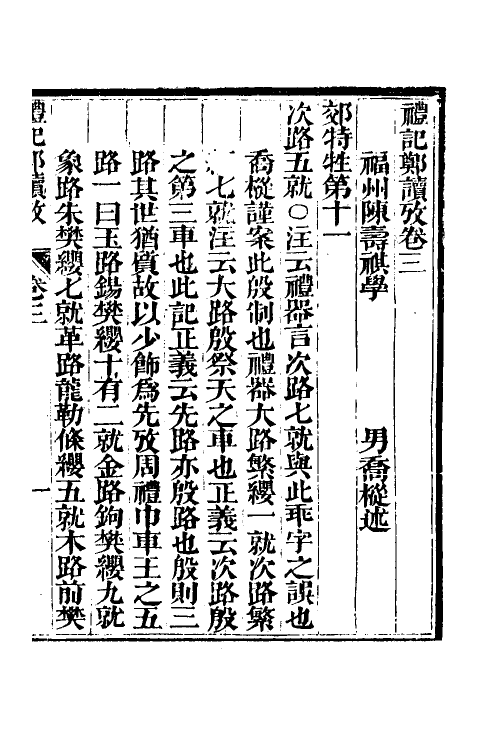 禮記鄭讀攷卷三
福州陳壽祺學 男喬樅述
郊特牲第十一
次路五就○注云禮器言次路七就與此乖字之誤也
喬樅謹案此殷制也禮器大路繁纓一就次路繁
七就注云大路殷祭天之車也正義云次路殷
之第三車也此記正義云先路亦殷路也殷則三
路其世猶質故以少飾爲先攷周禮巾車王之五
路一曰玉路鍚樊纓十有二就金路鉤樊纓九就
象路朱樊纓七就革路龍勒條纓五就木路前樊
禮記鄭讀攷 卷三 一